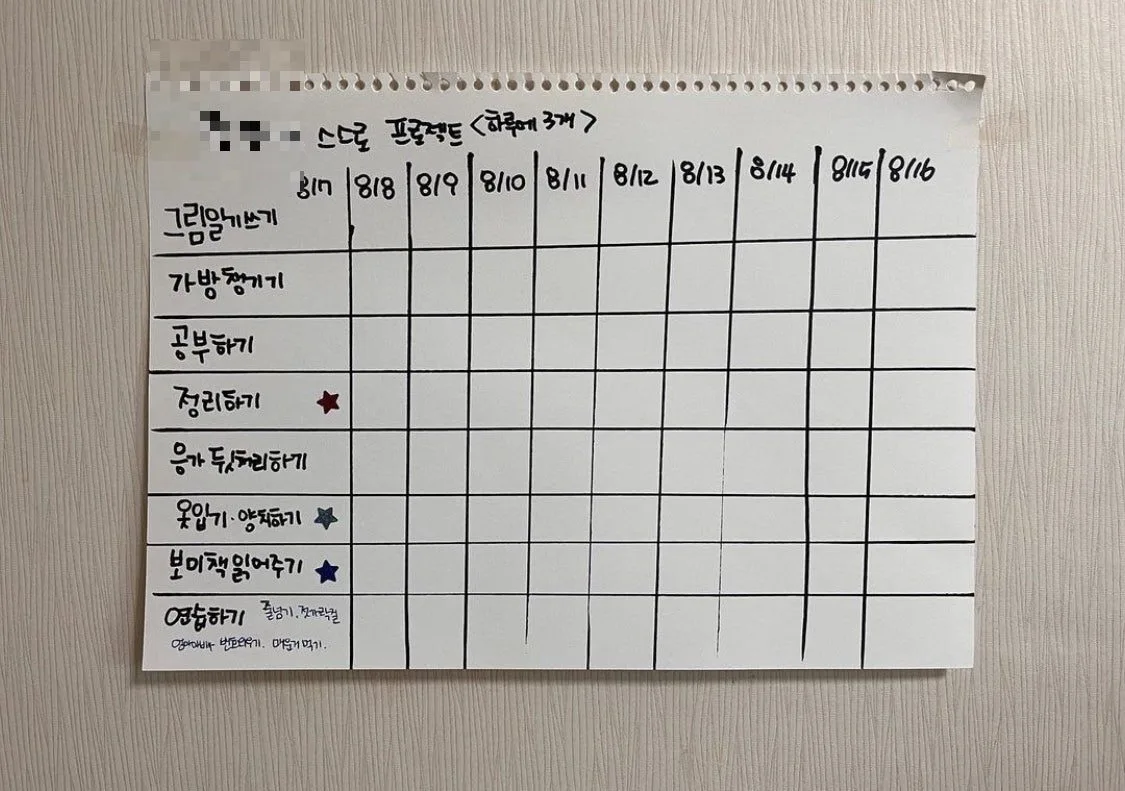 스스로 프로젝트 <하루에 3개>
8/7 8/8 8/9 8/10 8/11 8/12 8/13 8/14 8/15 8/16
그림일기쓰기
가방 챙기기
공부하기
정리하기
응가 뒷처리하기
옷입기·양치하기
보미책읽어주기
연습하기 줄넘기. 젓가락질
엄마아빠 번호외우기. 매운거 먹기.